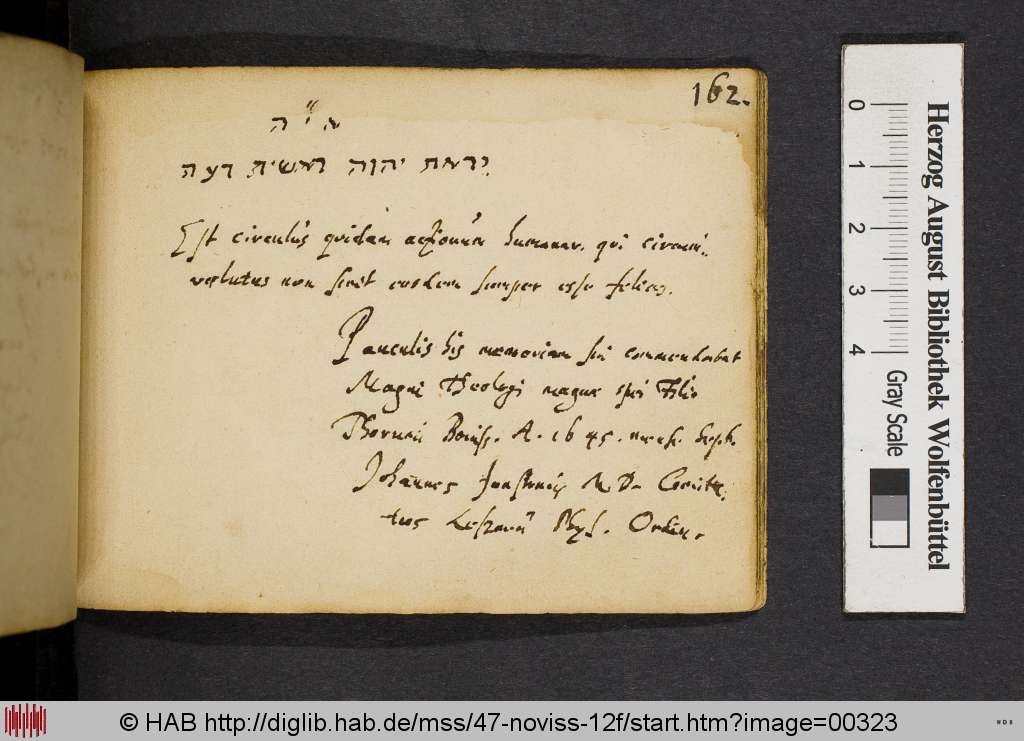 162.
א״י ה
יראת יהוה ראשית דעה
Est circulus quidam actionum humanar. qui circum-
volutus non sinit eosdem semper esse felices.
Pauculis his memoriam sui commendabat
Magni Theologi magnae spei Filio
Thorunii Boruss. A. 1645. mens. Sept.
Johannes Jonstonus M. D. Comit.
Lesznen. Phys. Ordin.
0 1 2 3 4
Gray Scale
Herzog August Bibliothek Wolfenbüttel
© HAB http://diglib.hab.de/mss/47-noviss-12f/start.htm?image=00323